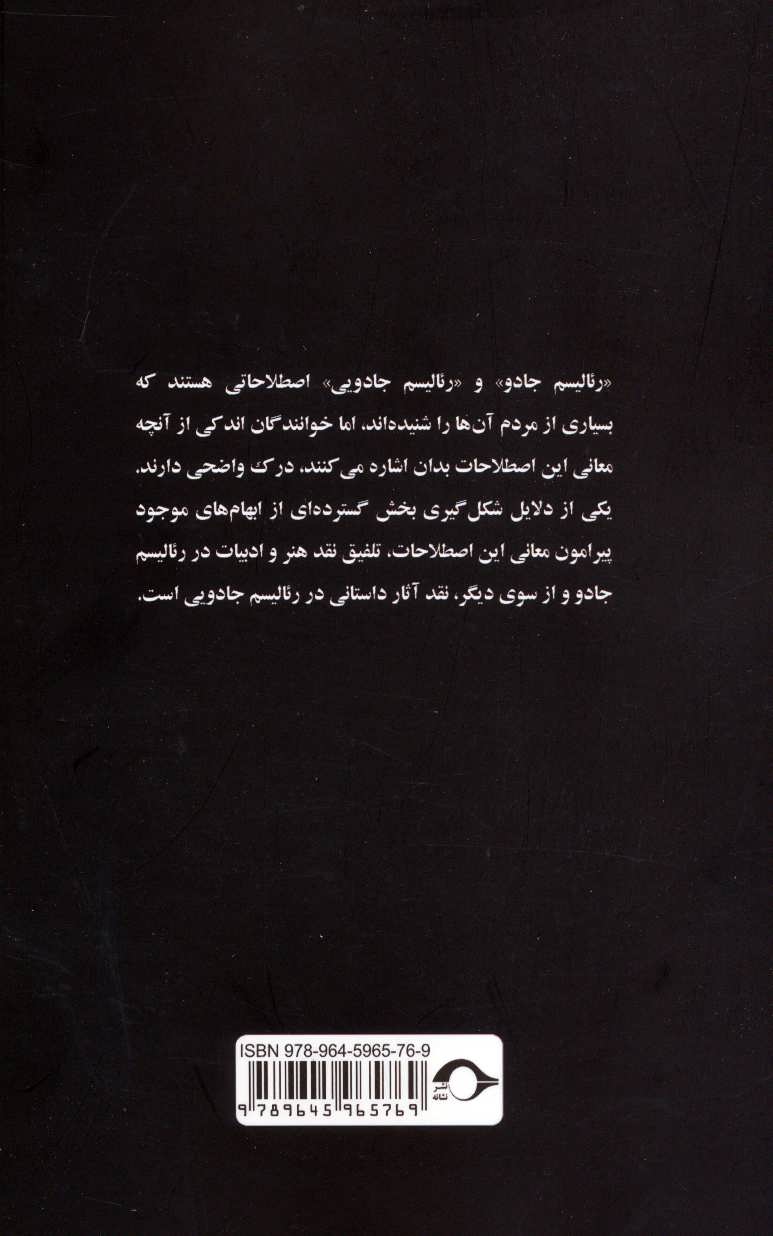 «رئالیسم جادو» و «رئالیسم جادویی» اصطلاحاتی هستند که
بسیاری از مردم آن‌ها را شنیده‌اند، اما خوانندگان اندکی از آنچه
معانی این اصطلاحات بدان اشاره می‌کنند، درک واضحی دارند.
یکی از دلایل شکل‌گیری بخش گسترده‌ای از ابهام‌های موجود
پیرامون معانی این اصطلاحات، تلفیق نقد هنر و ادبیات در رئالیسم
جادو و از سوی دیگر، نقد آثار داستانی در رئالیسم جادویی است.
ISBN 978-964-5965-76-9
نشر
نشانه
9 789645 965769